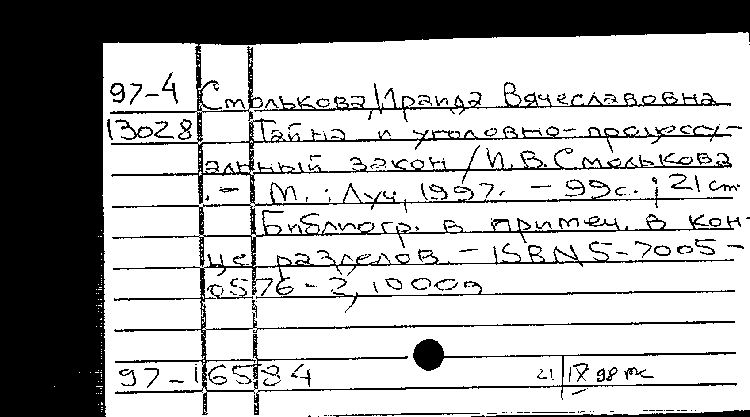 97-4 Смолькова, Ираида Вячеславовна
13028 Тайна и уголовно-процессу-
альный закон / И.В. Смолькова
. - М. : Луч, 1997. - 99с. ; 21 cm.
Библиогр. в примеч. в кон-
це разделов. - ISBN 5-7005-
0576-2, 1000э
97-16584 21/IX 98